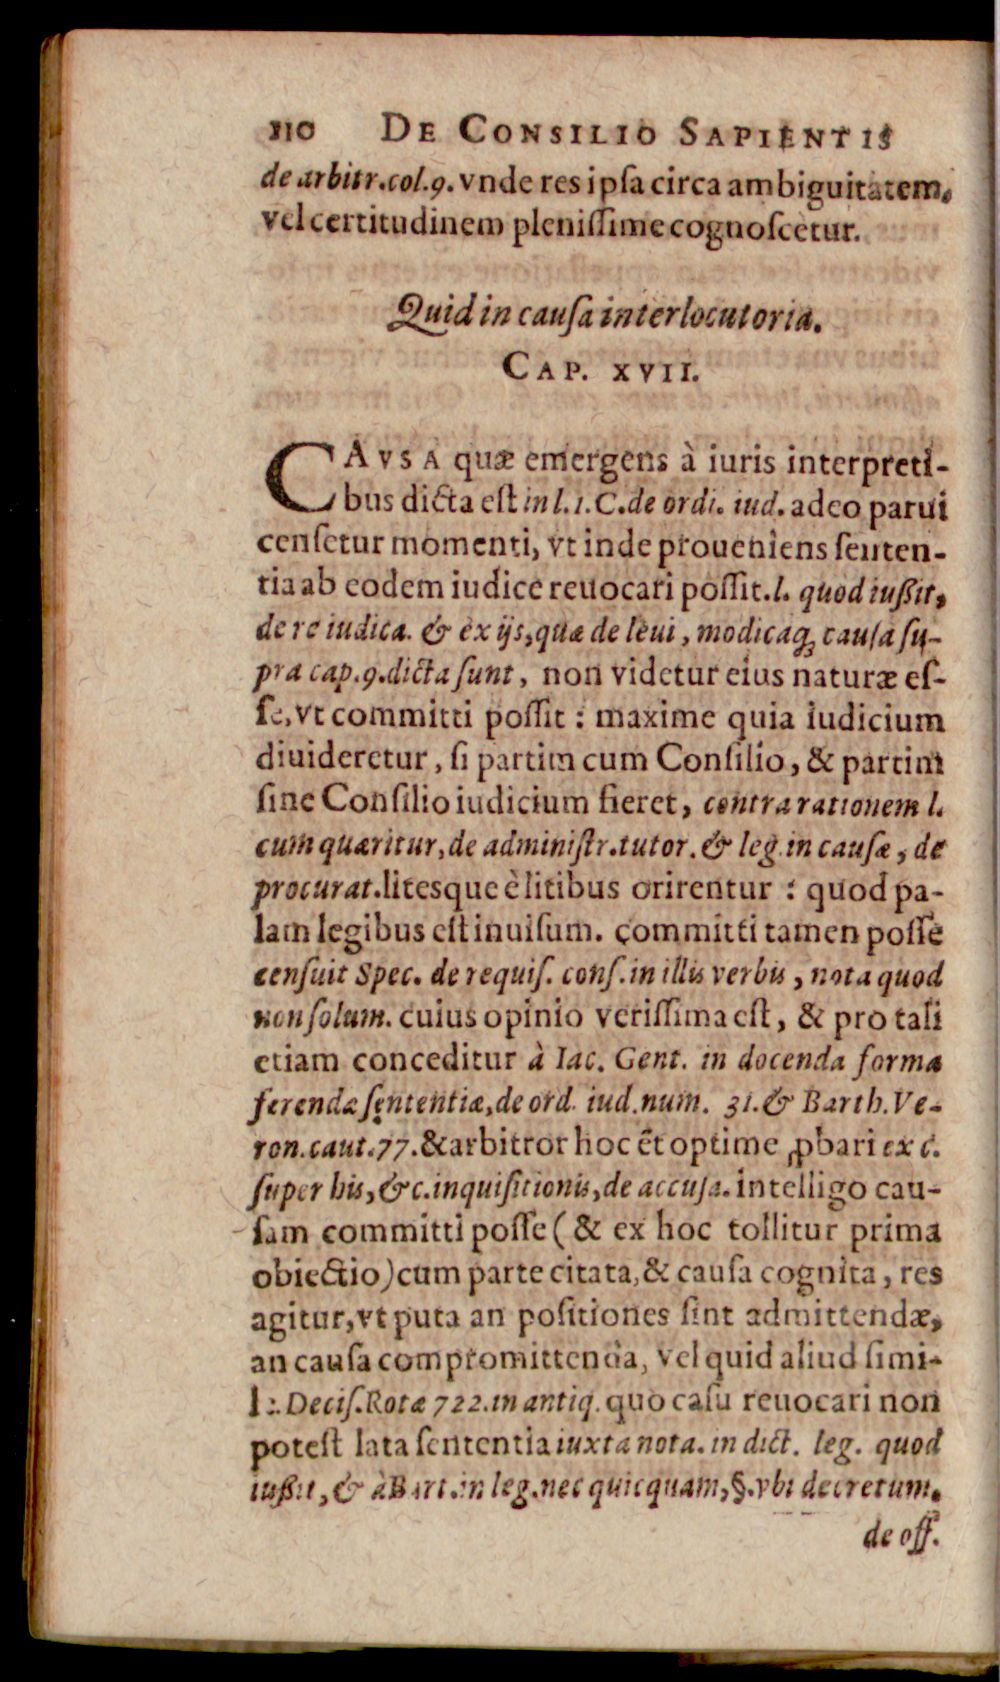 110 DE CONSILIO SAPIENTIS
de arbitr.col.9. vnde res ipſa circa ambiguitatem,
vel certitudinem pleniſſime cognoſcetur.
Quid in cauſa interlocutoria.
CAP. XVII.
CAVSA quæ emergens à iuris interpreti-
bus dicta eſt in l.1.C.de ordi. iud. adeo parui
cenſetur momenti, vt inde proueniens ſenten-
tia ab eodem iudice reuocari poſſit.l. quod iußit,
de re iudica. & ex ijs, quæ de leui, modicaq; cauſa ſu-
pra cap.9.dicta ſunt, non videtur eius naturæ eſ-
ſe, vt committi poſſit : maxime quia iudicium
diuideretur, ſi partim cum Conſilio, & partim
ſine Conſilio iudicium fieret, contra rationem l.
cum quæritur, de adminiſtr.tutor. & leg.in cauſæ, de
procurat.liteſque è litibus orirentur : quod pa-
lam legibus eſt inuiſum. committi tamen poſſe
cenſuit Spec. de requiſ. conſ. in illis verbis, nota quod
non ſolum. cuius opinio veriſſima eſt, & pro tali
etiam conceditur à Iac. Gent. in docenda forma
ferendæ ſententiæ, de ord. iud.num. 31. & Barth.Ve-
ron.caut.77.& arbitror hoc ēt optime ꝓbari ex c.
ſuper his, & c.inquiſitionis, de accuſa. intelligo cau-
ſam committi poſſe (& ex hoc tollitur prima
obiectio) cum parte citata, & cauſa cognita, res
agitur, vt puta an poſitiones ſint admittendæ,
an cauſa compromittenda, vel quid aliud ſimi-
l:. Deciſ.Rotæ 722.in antiq. quo caſu reuocari non
poteſt lata ſententia iuxta nota. in dict. leg. quod
iußit, & à Bart.in leg.nec quicquam, §.vbi decretum.
de off.